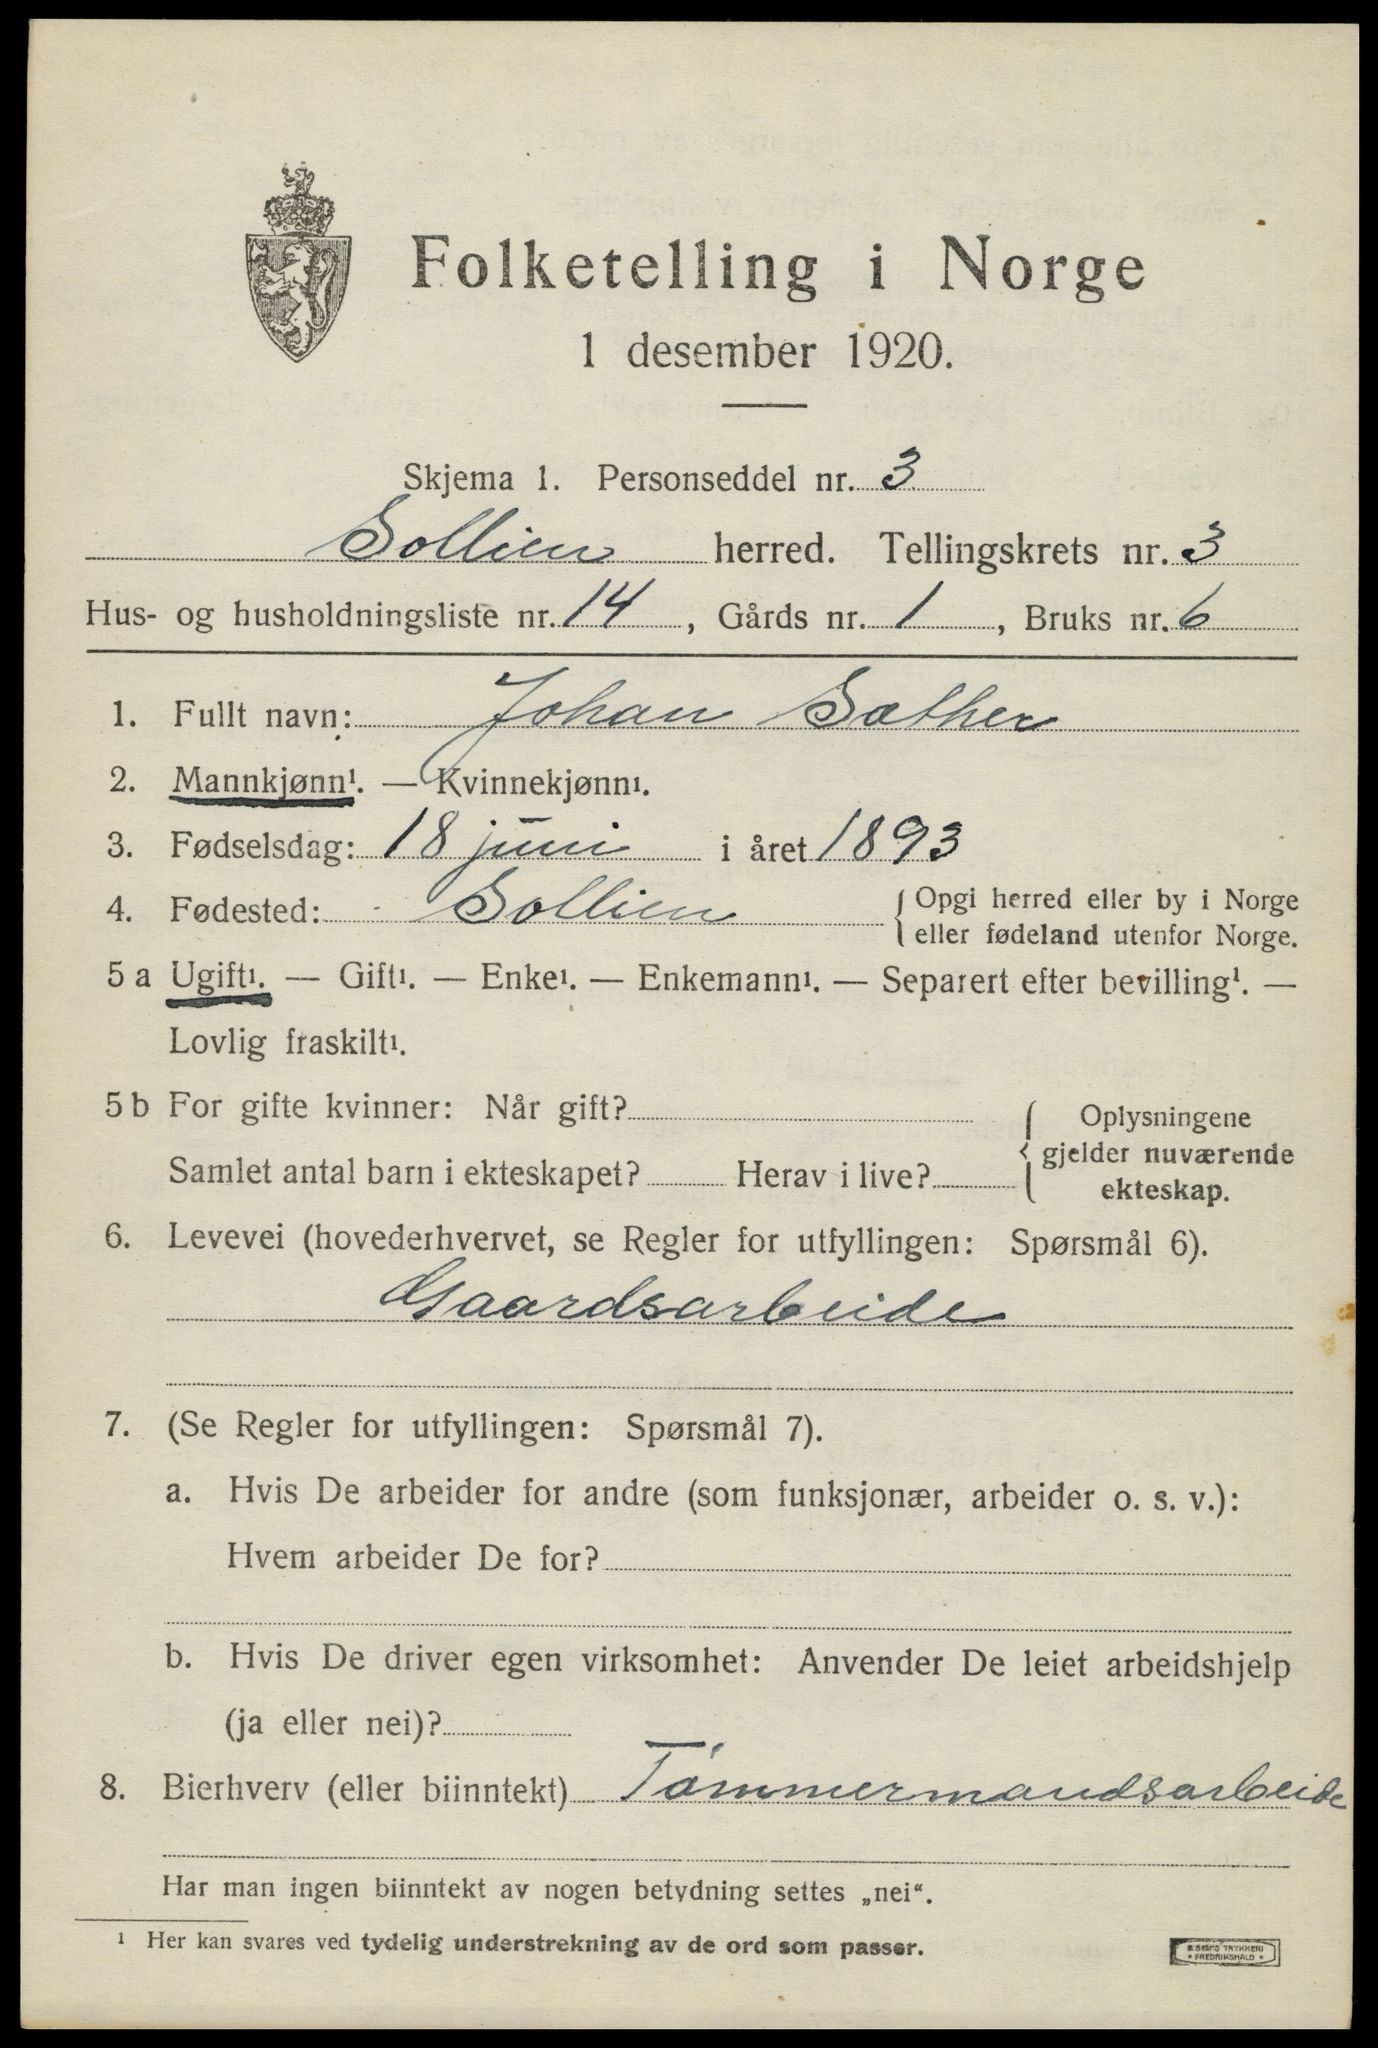 Folketelling i Norge
1 desember 1920.
Skjema 1. Personseddel nr. 3
Sollien herred. Tellingskrets nr. 3
Hus- og husholdningsliste nr. 14, Gårds nr. 1, Bruks nr. 6
1. Fullt navn: Johan Sæther
2. Mannkjønn¹. — Kvinnekjønn¹.
3. Fødselsdag: 18 juni i året 1893
4. Fødested: Sollien { Opgi herred eller by i Norge
eller fødeland utenfor Norge.
5 a Ugift¹. — Gift¹. — Enke¹. — Enkemann¹. — Separert efter bevilling¹. —
Lovlig fraskilt¹.
5 b For gifte kvinner: Når gift? { Oplysningene
gjelder nuværende
Samlet antal barn i ekteskapet? Herav i live?
ekteskap.
6. Levevei (hovederhvervet, se Regler for utfyllingen: Spørsmål 6).
Gaardsarbeide
7. (Se Regler for utfyllingen: Spørsmål 7).
a. Hvis De arbeider for andre (som funksjonær, arbeider o. s. v.):
Hvem arbeider De for?
b. Hvis De driver egen virksomhet: Anvender De leiet arbeidshjelp
(ja eller nei)?
8. Bierhverv (eller biinntekt) Tømmermandsarbeide
Har man ingen biinntekt av nogen betydning settes „nei“.
¹ Her kan svares ved tydelig understrekning av de ord som passer.
E SEM'S TRYKKERI
• FREDRIKSHALD •